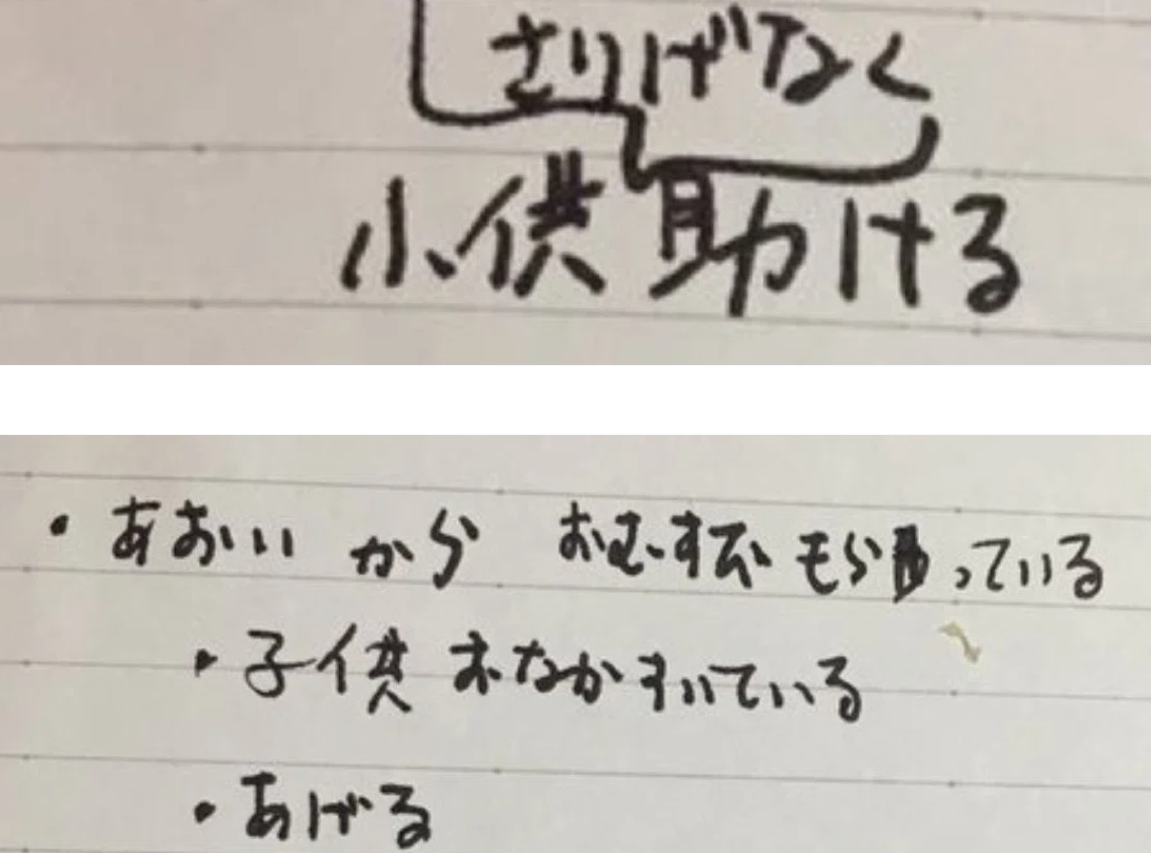 さりげなく
小供助ける
・あおいから おむすび もらっている
・子供 おなかすいている
・あげる